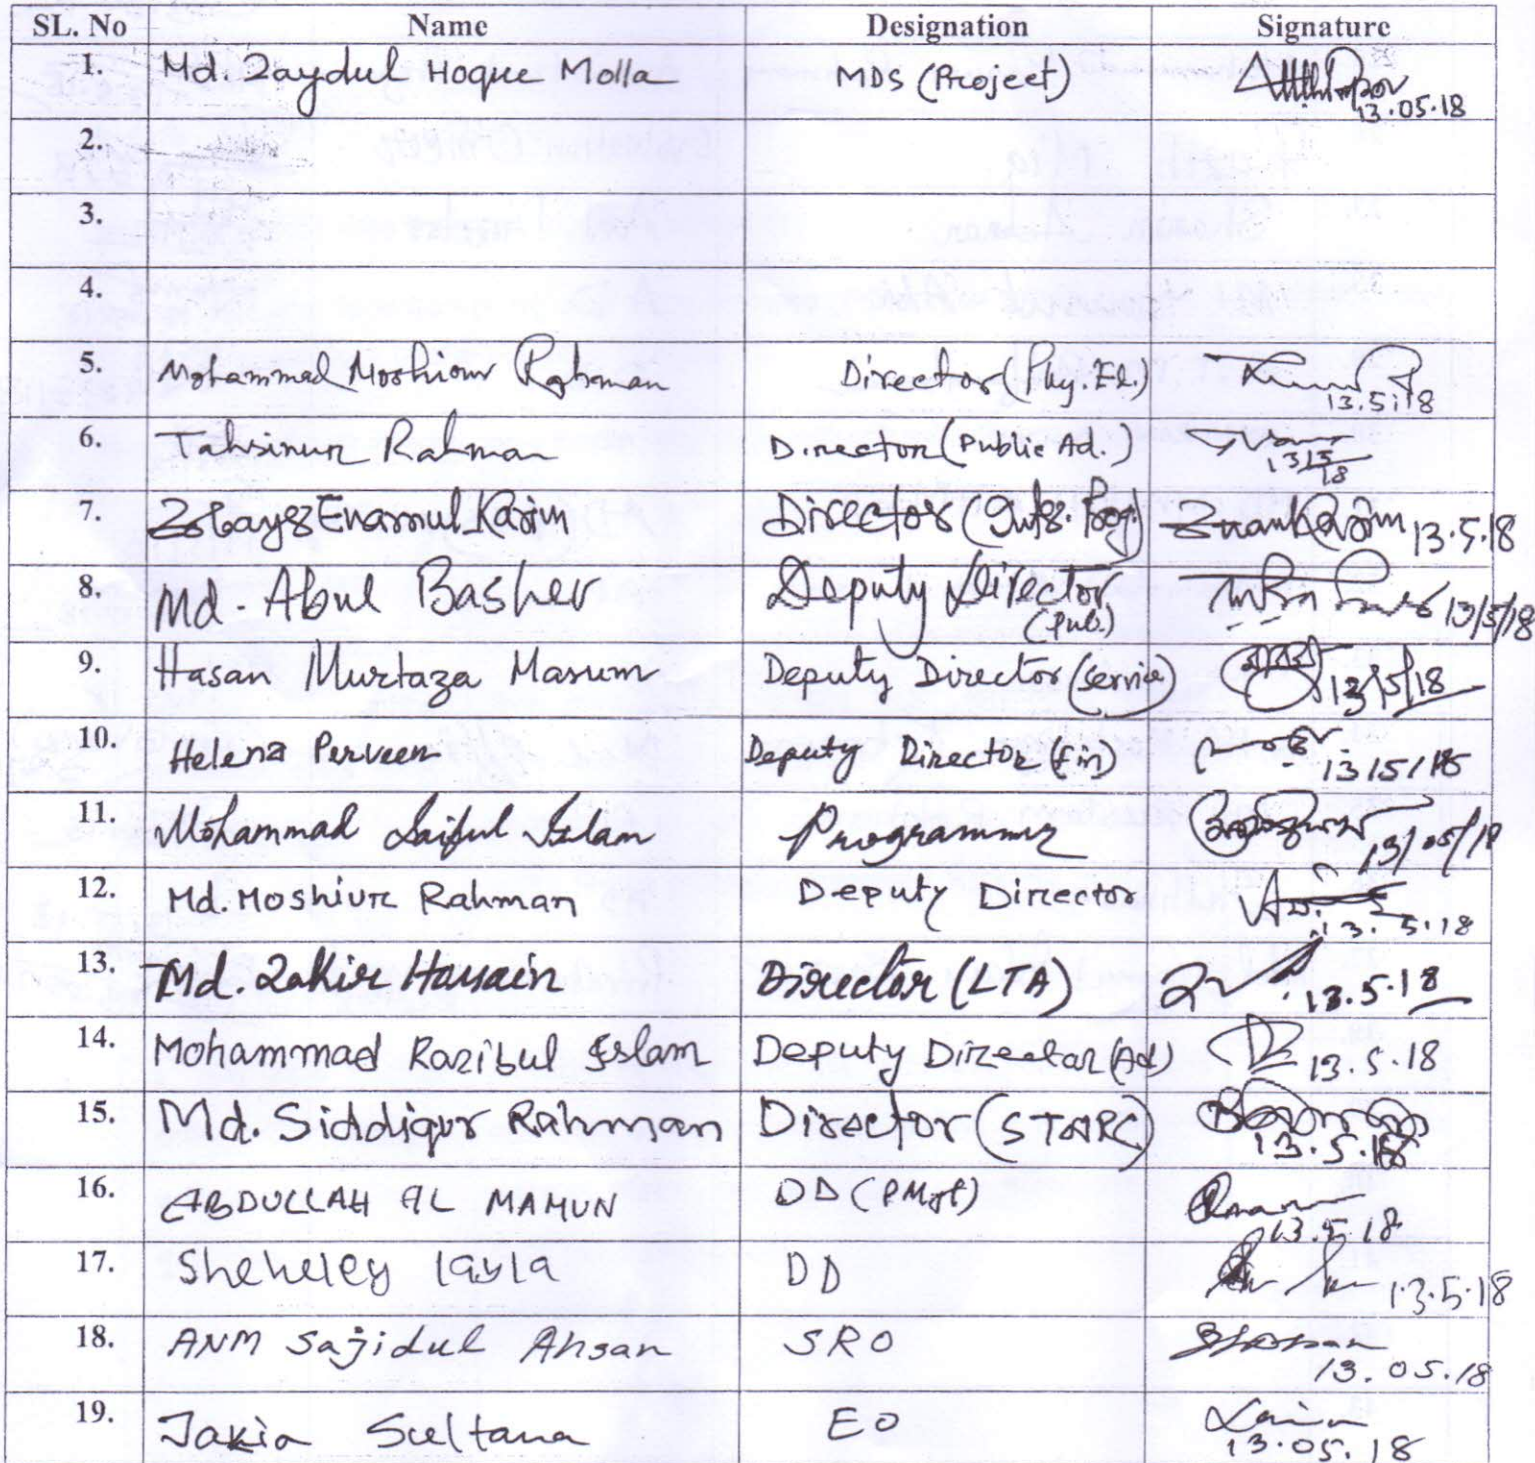 SL. No Name Designation Signature
1. Md. Zaydul Hoque Molla MDS (Project) 13.05.18
2.
3.
4.
5. Mohammed Moshiour Rahman Director (Phy. El.) 13.5.18
6. Tahsinur Rahman Director (Public Ad.) 13/5/18
7. Enamul Karim Director (Prog.) 13.5.18
8. Md. Abul Basher Deputy Director (Pub.) 13/5/18
9. Hasan Murtaza Masum Deputy Director (Service) 13/5/18
10. Helena Perveen Deputy Director (fin) 13/5/18
11. Mohammad Saiful Islam Programmer 13/05/18
12. Md. Moshiur Rahman Deputy Director 13.5.18
13. Md. Zakir Hossain Director (LTA) 13.5.18
14. Mohammad Razibul Islam Deputy Director (Ad) 13.5.18
15. Md. Siddiqur Rahman Director (STARC) 13.5.18
16. ABDULLAH AL MAMUN DD (PMgt) 13.5.18
17. Sheheley layla DD 13.5.18
18. ANM Sajidul Ahsan SRO 13.05.18
19. Jakia Sultana EO 13.05.18